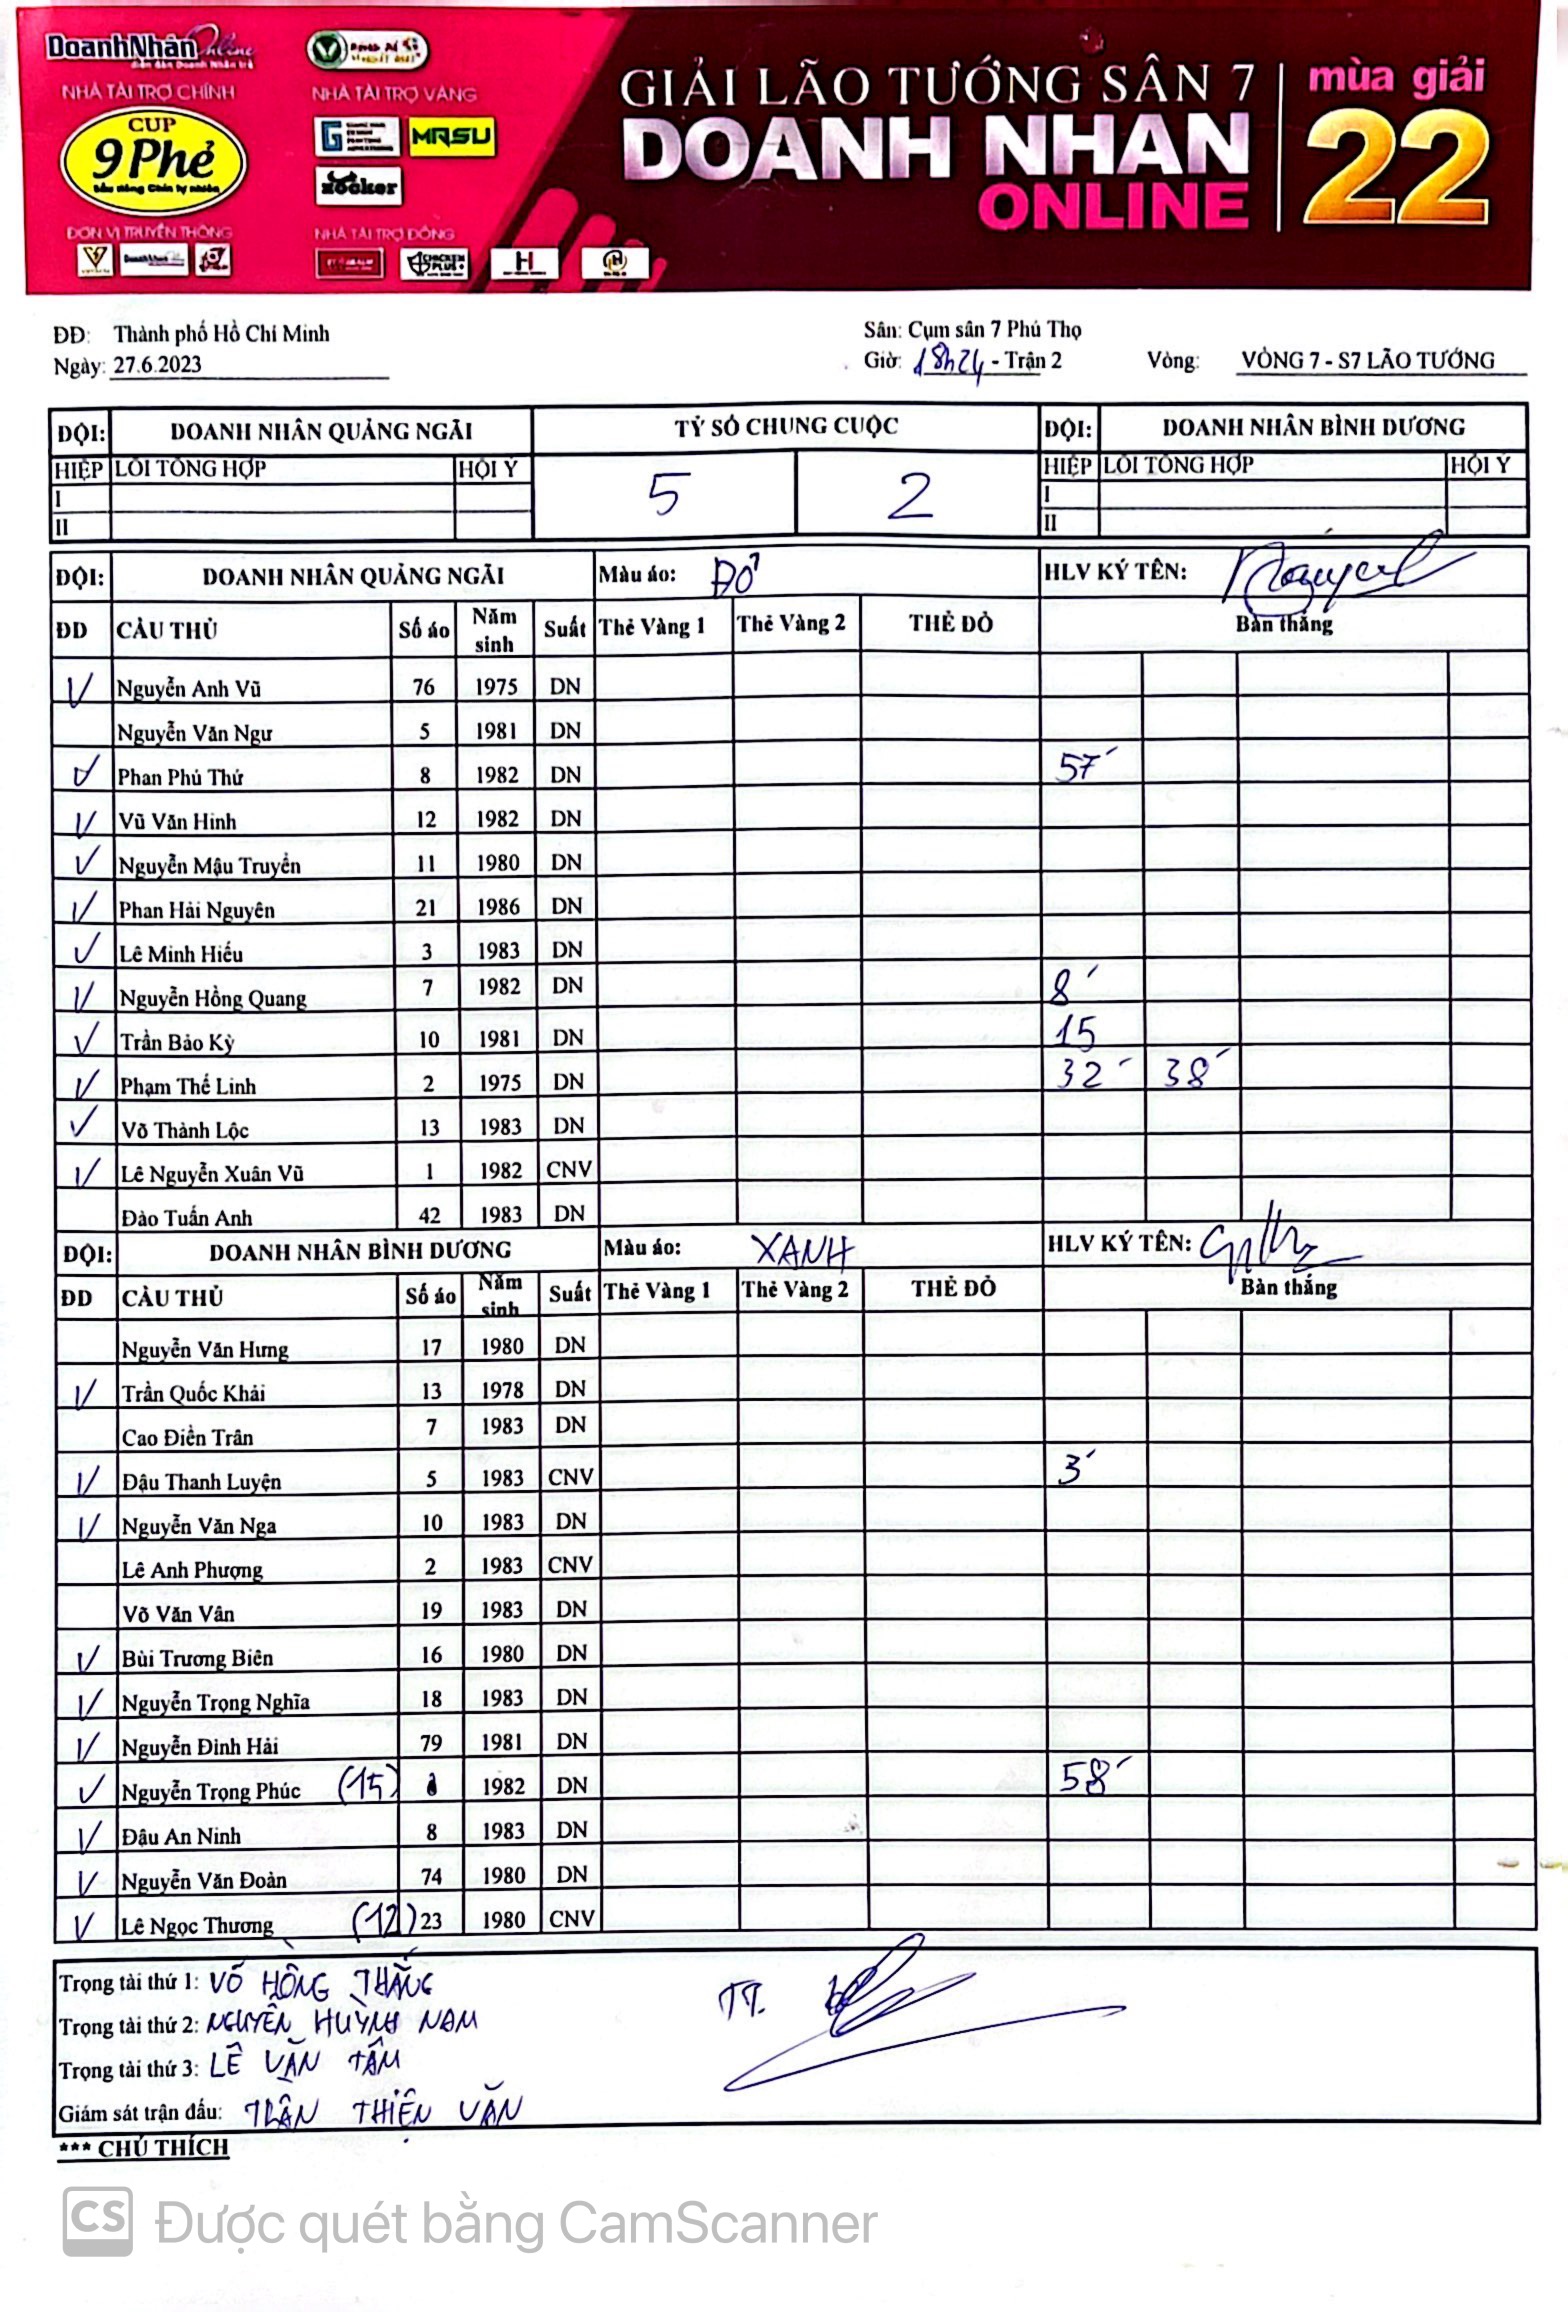 DoanhNhân Online
diễn đàn Doanh Nhân trẻ
NHÀ TÀI TRỢ CHÍNH
CUP
9 Phẻ
NHÀ TÀI TRỢ VÀNG
MRSU
ĐƠN VỊ TRUYỀN THÔNG
NHÀ TÀI TRỢ ĐỒNG
CHICKEN PLUS+
GIẢI LÃO TƯỚNG SÂN 7
DOANH NHAN
ONLINE
mùa giải
22
ĐĐ: Thành phố Hồ Chí Minh
Sân: Cụm sân 7 Phú Thọ
Ngày: 27.6.2023
Giờ: 18h24 - Trận 2
Vòng: VÒNG 7 - S7 LÃO TƯỚNG
ĐỘI: DOANH NHÂN QUẢNG NGÃI TỶ SỐ CHUNG CUỘC ĐỘI: DOANH NHÂN BÌNH DƯƠNG
HIỆP LỖI TỔNG HỢP HỘI Ý 5 2 HIỆP LỖI TỔNG HỢP HỘI Ý
I I
II II
ĐỘI: DOANH NHÂN QUẢNG NGÃI Màu áo: ĐỎ HLV KÝ TÊN:
ĐD CẦU THỦ Số áo Năm sinh Suất Thẻ Vàng 1 Thẻ Vàng 2 THẺ ĐỎ Bàn thắng
Nguyễn Anh Vũ 76 1975 DN
Nguyễn Văn Ngư 5 1981 DN
Phan Phú Thứ 8 1982 DN 57´
Vũ Văn Hinh 12 1982 DN
Nguyễn Mậu Truyền 11 1980 DN
Phan Hải Nguyên 21 1986 DN
Lê Minh Hiếu 3 1983 DN
Nguyễn Hồng Quang 7 1982 DN 8´
Trần Bảo Kỳ 10 1981 DN 15
Phạm Thế Linh 2 1975 DN 32´ 38´
Võ Thành Lộc 13 1983 DN
Lê Nguyễn Xuân Vũ 1 1982 CNV
Đào Tuấn Anh 42 1983 DN
ĐỘI: DOANH NHÂN BÌNH DƯƠNG Màu áo: XANH HLV KÝ TÊN:
ĐD CẦU THỦ Số áo Năm sinh Suất Thẻ Vàng 1 Thẻ Vàng 2 THẺ ĐỎ Bàn thắng
Nguyễn Văn Hưng 17 1980 DN
Trần Quốc Khải 13 1978 DN
Cao Điền Trân 7 1983 DN
Đậu Thanh Luyện 5 1983 CNV 3´
Nguyễn Văn Nga 10 1983 DN
Lê Anh Phượng 2 1983 CNV
Võ Văn Vân 19 1983 DN
Bùi Trương Biên 16 1980 DN
Nguyễn Trọng Nghĩa 18 1983 DN
Nguyễn Đình Hải 79 1981 DN
Nguyễn Trọng Phúc (15) 1982 DN 58´
Đậu An Ninh 8 1983 DN
Nguyễn Văn Đoàn 74 1980 DN
Lê Ngọc Thương (12) 23 1980 CNV
Trọng tài thứ 1: VÕ HỒNG THẮNG
TT.
Trọng tài thứ 2: NGUYỄN HUỲNH NAM
Trọng tài thứ 3: LÊ VĂN TÂM
Giám sát trận đấu: TRẦN THIỆN VĂN
*** CHÚ THÍCH
CS Được quét bằng CamScanner